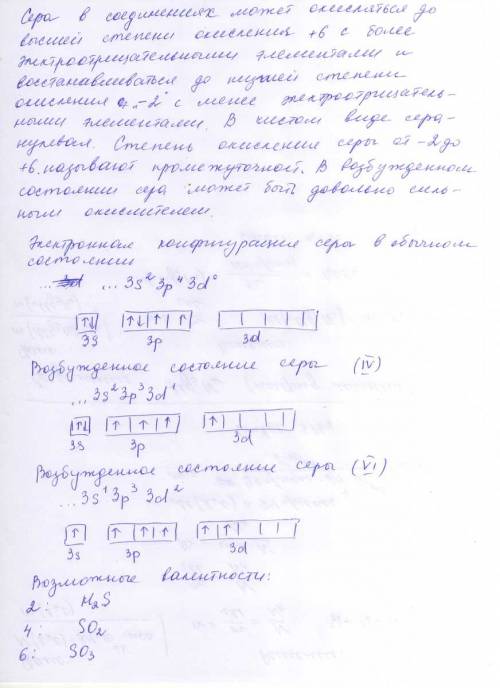 Сера в соединениях может окисляться до
высшей степени окисления +6 с более
электроотрицательными элементами и
восстанавливаться до низшей степени
окисления -2 с менее электроотрицатель-
ными элементами. В чистом виде сера-
нулевая. Степень окисления серы от -2 до
+6 называют промежуточной. В возбужденном
состоянии сера может быть довольно силь-
ным окислителем.
Электронная конфигурация серы в обычном
состоянии
... ... 3s² 3p⁴ 3d⁰
↑↓ ↑↓ ↑ ↑
3s 3p 3d
Возбужденное состояние серы (IV)
...3s² 3p³ 3d¹
↑↓ ↑ ↑ ↑ ↑
3s 3p 3d
Возбужденное состояние серы (VI)
...3s¹ 3p³ 3d²
↑ ↑ ↑ ↑ ↑ ↑
3s 3p 3d
Возможные валентности:
2: H₂S
4: SO₂
6: SO₃